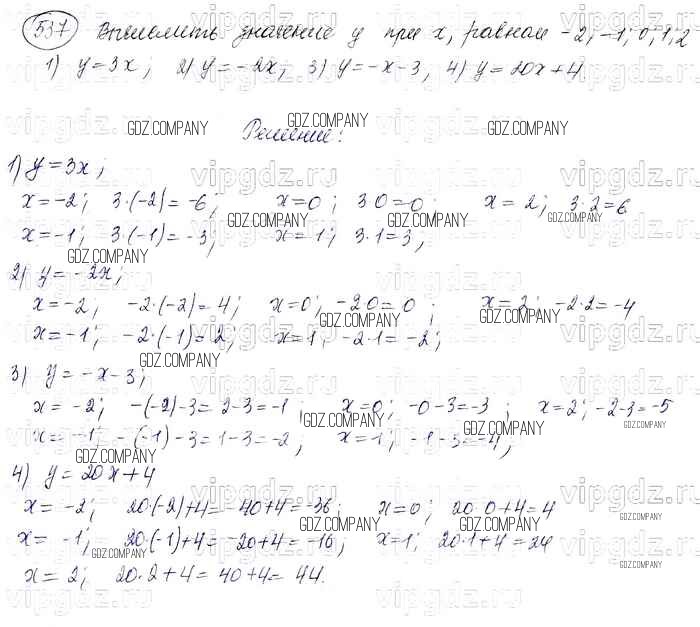 537 Вычислить значение y при x, равном -2; -1; 0; 1; 2
1) y = 3x; 2) y = -2x; 3) y = -x-3, 4) y = 20x+4
Решение:
1) y = 3x;
x = -2; 3·(-2) = -6; x = 0; 3·0 = 0; x = 2; 3·2 = 6
x = -1; 3·(-1) = -3; x = 1; 3·1 = 3;
2) y = -2x;
x = -2, -2·(-2) = 4; x = 0; -2·0 = 0; x = 2; -2·2 = -4
x = -1; -2·(-1) = 2; x = 1; -2·1 = -2;
3) y = -x-3;
x = -2; -(-2)-3 = 2-3 = -1; x = 0; -0-3 = -3; x = 2; -2-3 = -5
x = -1; -(-1)-3 = 1-3 = -2, x = 1; -1-3 = -4;
4) y = 20x+4
x = -2; 20·(-2)+4 = -40+4 = -36; x = 0; 20·0+4 = 4
x = -1; 20·(-1)+4 = -20+4 = -16; x = 1; 20·1+4 = 24
x = 2; 20·2+4 = 40+4 = 44.
vipgdz.ru
GDZ.COMPANY